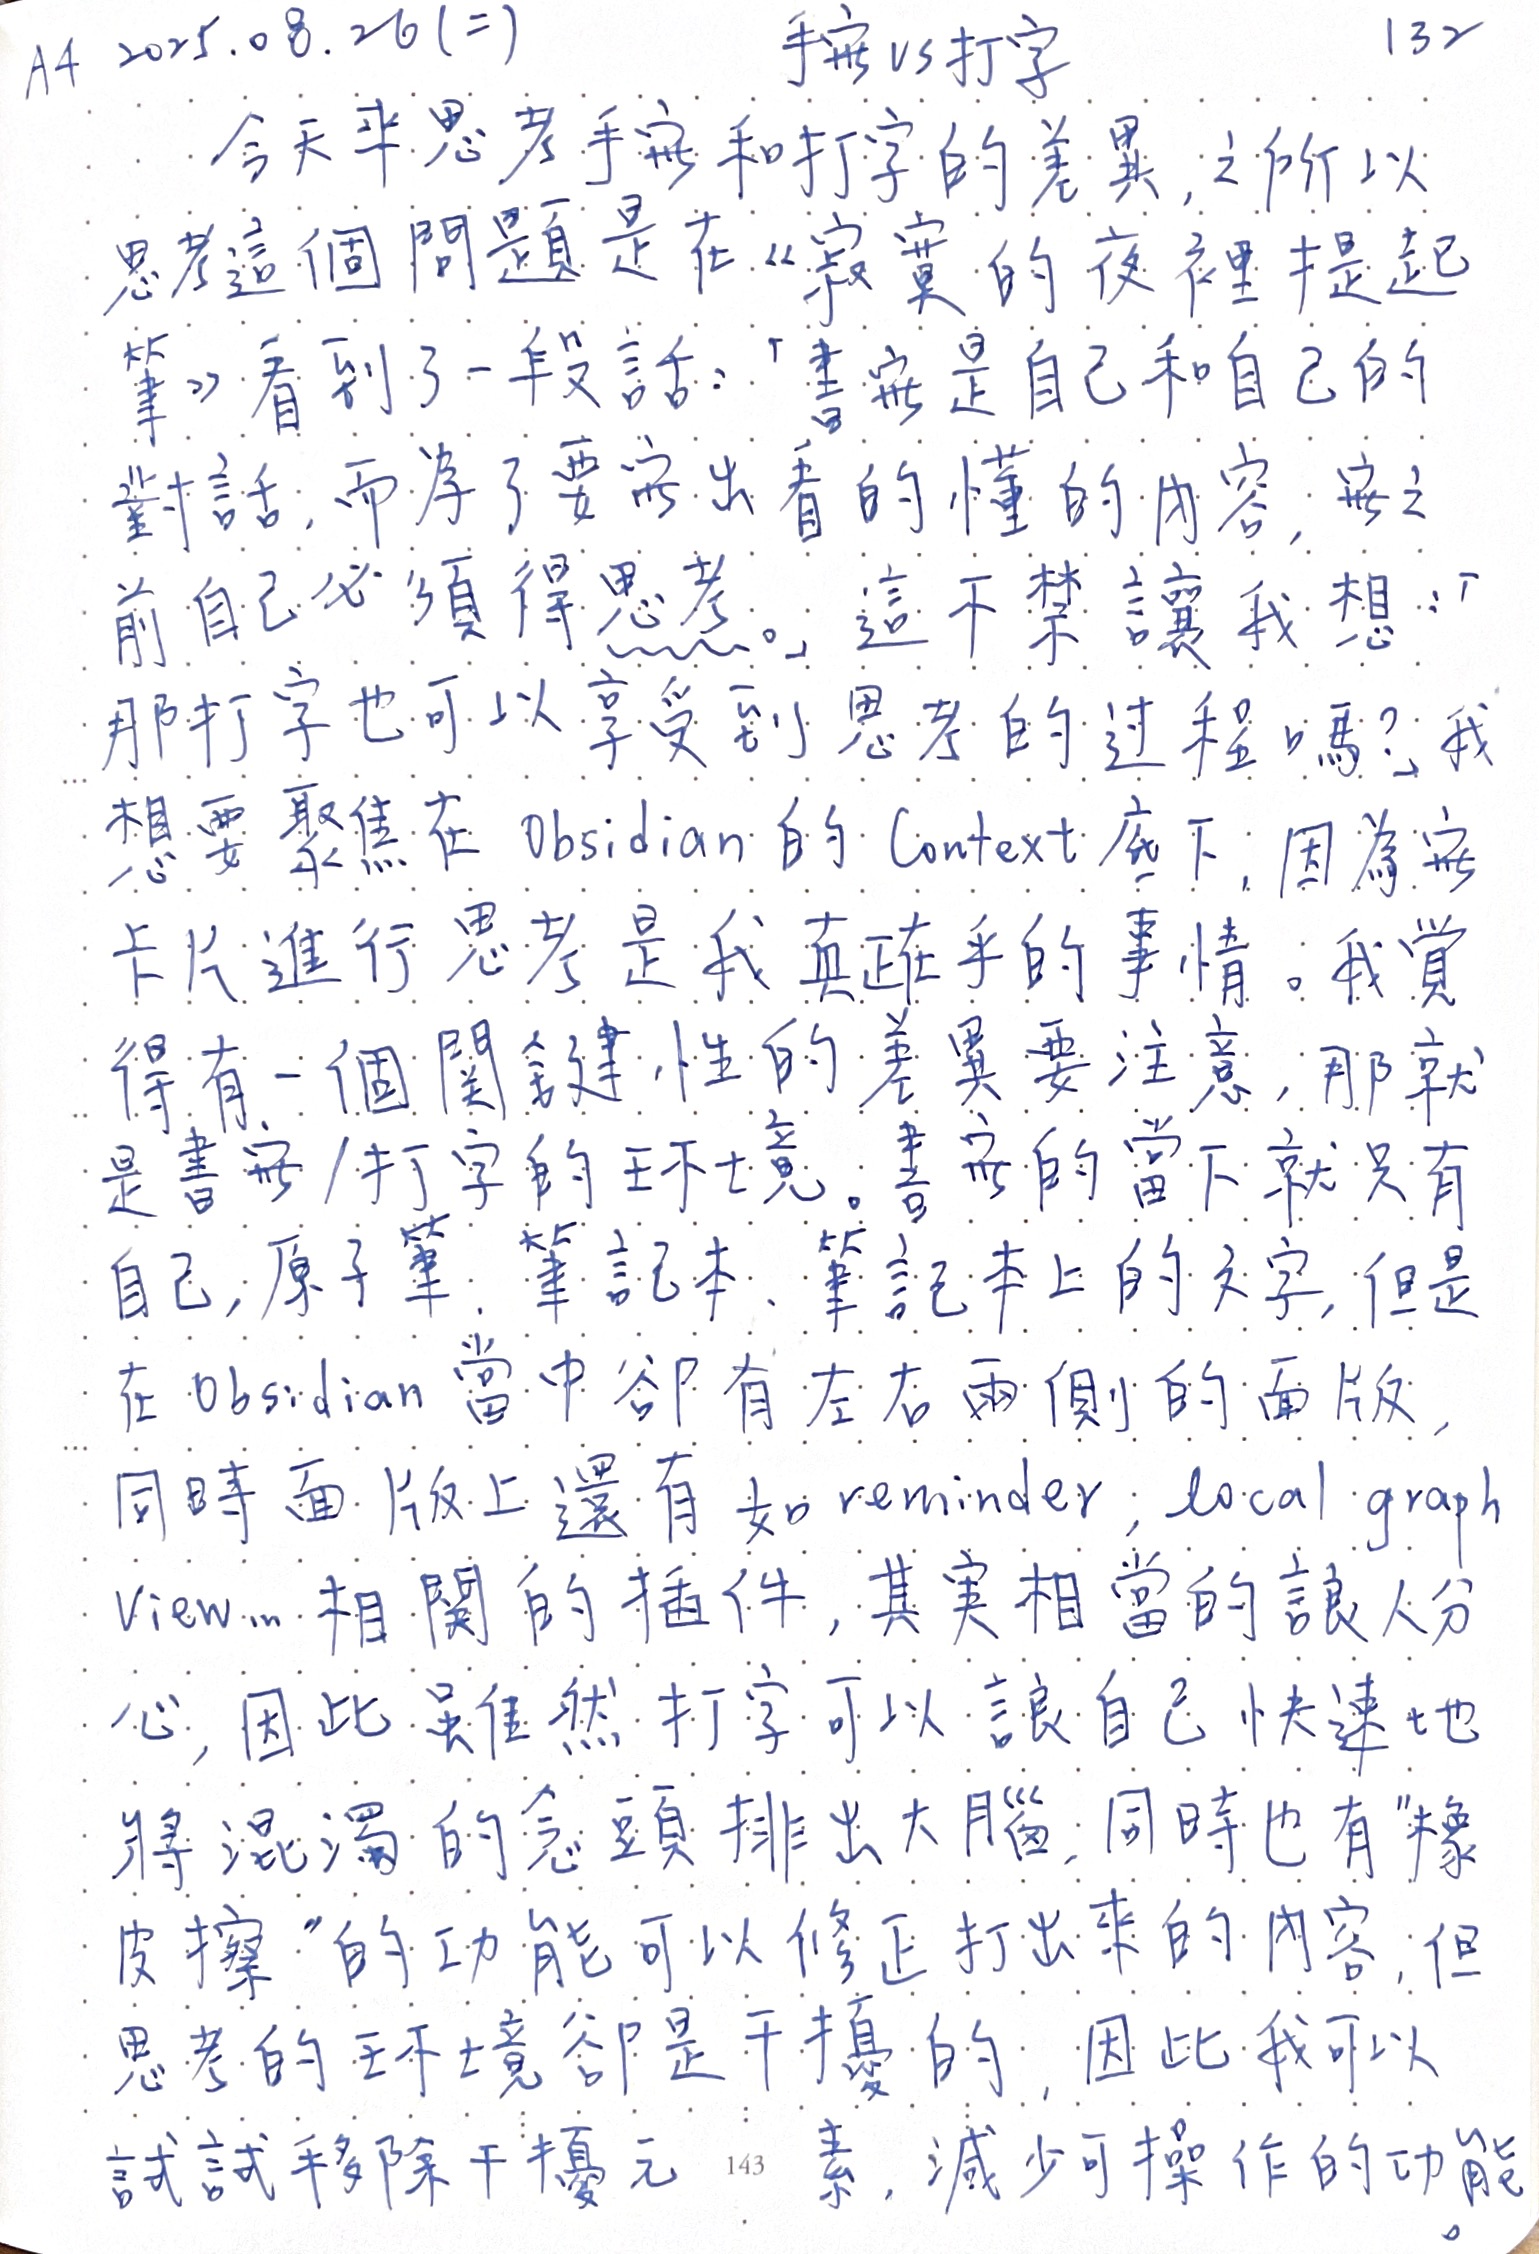 A4 2025.08.26(二) 手寫vs打字 132
今天來思考手寫和打字的差異,之所以
思考這個問題是在《寂寞的夜裡提起
筆》看到了一段話:「書寫是自己和自己的
對話,而為了要寫出看的懂的內容,寫之
前自己必須得思考。」這不禁讓我想:「
那打字也可以享受到思考的过程嗎?」我
想要聚焦在Obsidian的Context底下,因為寫
卡片進行思考是我真正在乎的事情。我覺
得有一個関鍵性的差異要注意,那就
是書寫/打字的环境。書寫的當下就只有
自己,原子筆、筆記本、筆記本上的文字,但是
在Obsidian當中卻有左右兩側的面版,
同時面版上還有如reminder, local graph
view…相関的插件,其実相當的讓人分
心,因此虽雖然打字可以讓自己快速地
將混濁的念頭排出大腦,同時也有"橡
皮擦"的功能可以修正打出來的內容,但
思考的环境卻是干擾的,因此我可以
試試移除干擾元素,減少可操作的功能。
143